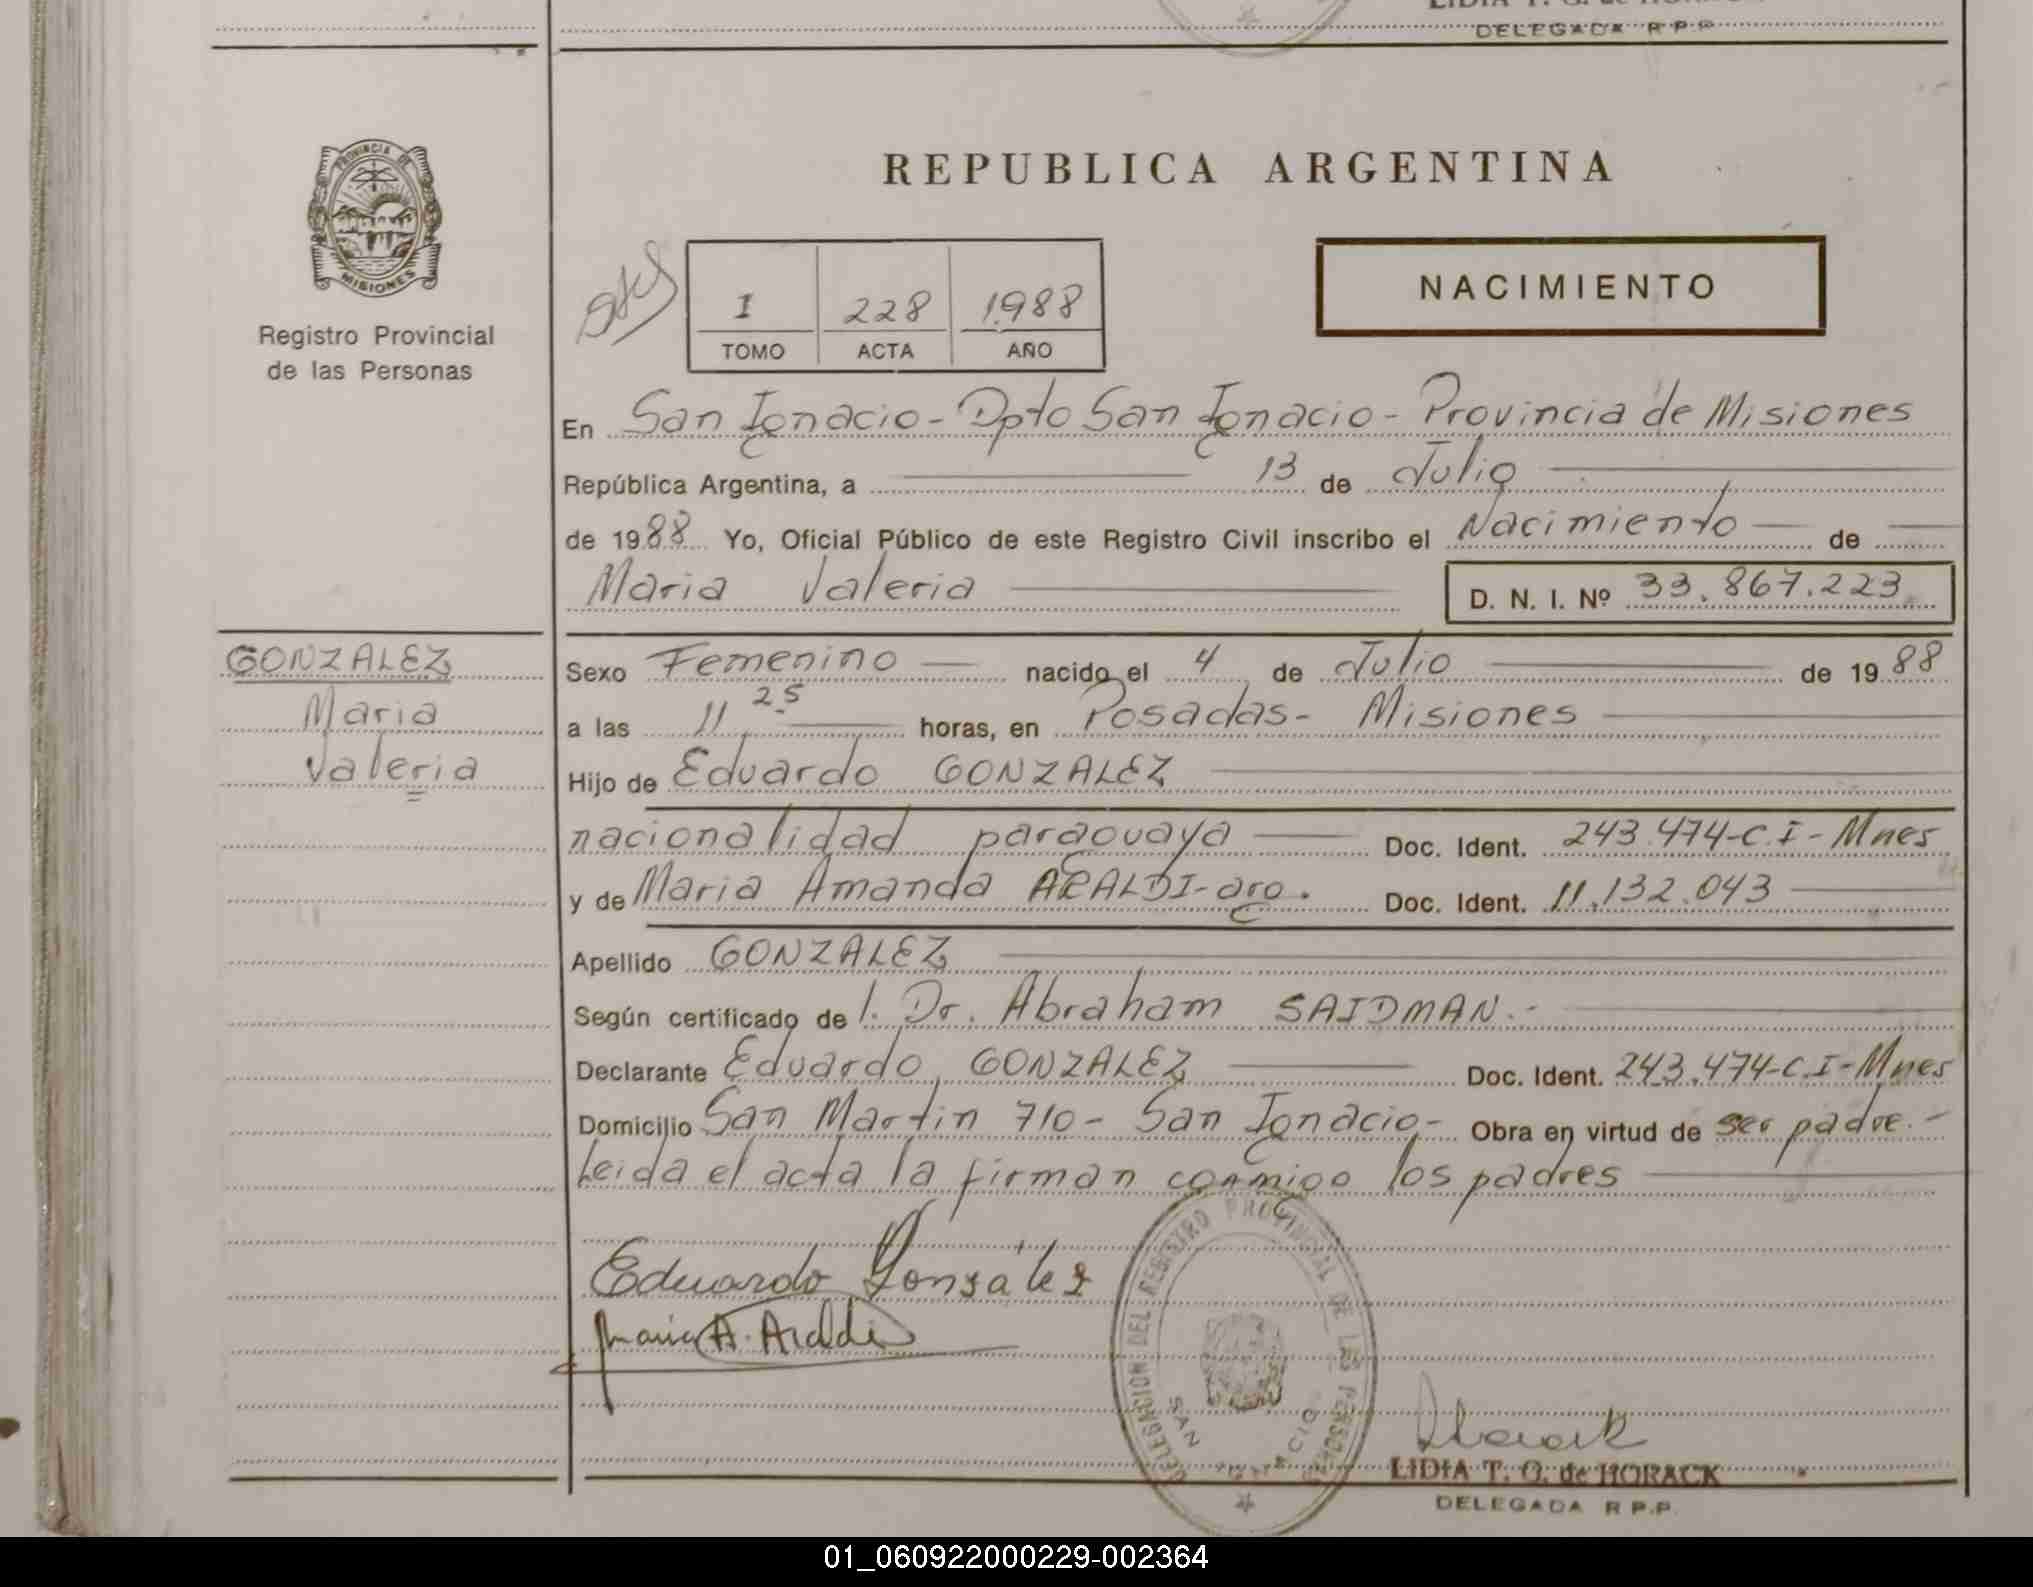 DELEGADA R P P
REPUBLICA ARGENTINA
PROVINCIA DE
MISIONES
Registro Provincial
de las Personas
I 228 1988
TOMO ACTA AÑO
NACIMIENTO
En San Ignacio - Dpto San Ignacio - Provincia de Misiones
República Argentina, a 13 de Julio
de 1988 Yo, Oficial Público de este Registro Civil inscribo el Nacimiento de
Maria Valeria D. N. I. Nº 33.867.223
GONZALEZ
Maria
Valeria
Sexo Femenino nacido el 4 de Julio de 19 88
a las 11 25 horas, en Posadas - Misiones
Hijo de Eduardo GONZALEZ
nacionalidad paraguaya Doc. Ident. 243.474-C.I-Mnes
y de Maria Amanda ARALDI-arg. Doc. Ident. 11.132.043
Apellido GONZALEZ
Según certificado de l. Dr. Abraham SAIDMAN.-
Declarante Eduardo GONZALEZ Doc. Ident. 243.474-C.I-Mnes
Domicilio San Martin 710 - San Ignacio - Obra en virtud de ser padre.-
Leida el acta la firman conmigo los padres
Eduardo González
Maria A. Araldi
DELEGACION DEL REGISTRO PROVINCIAL DE LAS PERSONAS
SAN IGNACIO
LIDIA T. O. de HORACK
DELEGADA R P.P.
01_060922000229-002364